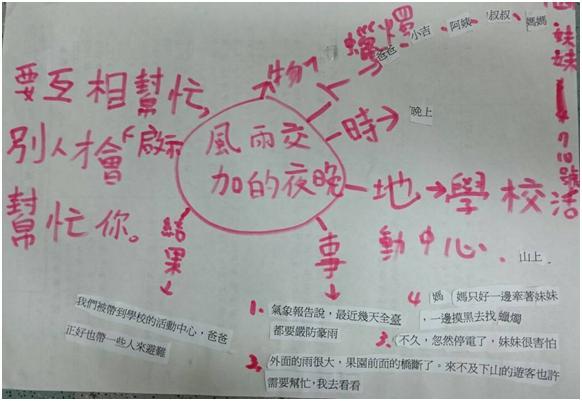 物
蠟燭
爸爸、小吉、阿姨、叔叔、媽媽
妹妹
時 晚上
地 學校活
動中心、山上
風雨交
加的夜晚
啟示
要互相幫忙,
別人才會
幫忙你。
結果
我們被帶到學校的活動中心，爸爸
正好也帶一些人來避難
事
1. 氣象報告說，最近幾天全臺
都要嚴防豪雨
2. 外面的雨很大，果園前面的橋斷了。來不及下山的遊客也許
需要幫忙，我去看看
3. 不久，忽然停電了，妹妹很害怕
4 媽媽只好一邊牽著妹妹
，一邊摸黑去找蠟燭